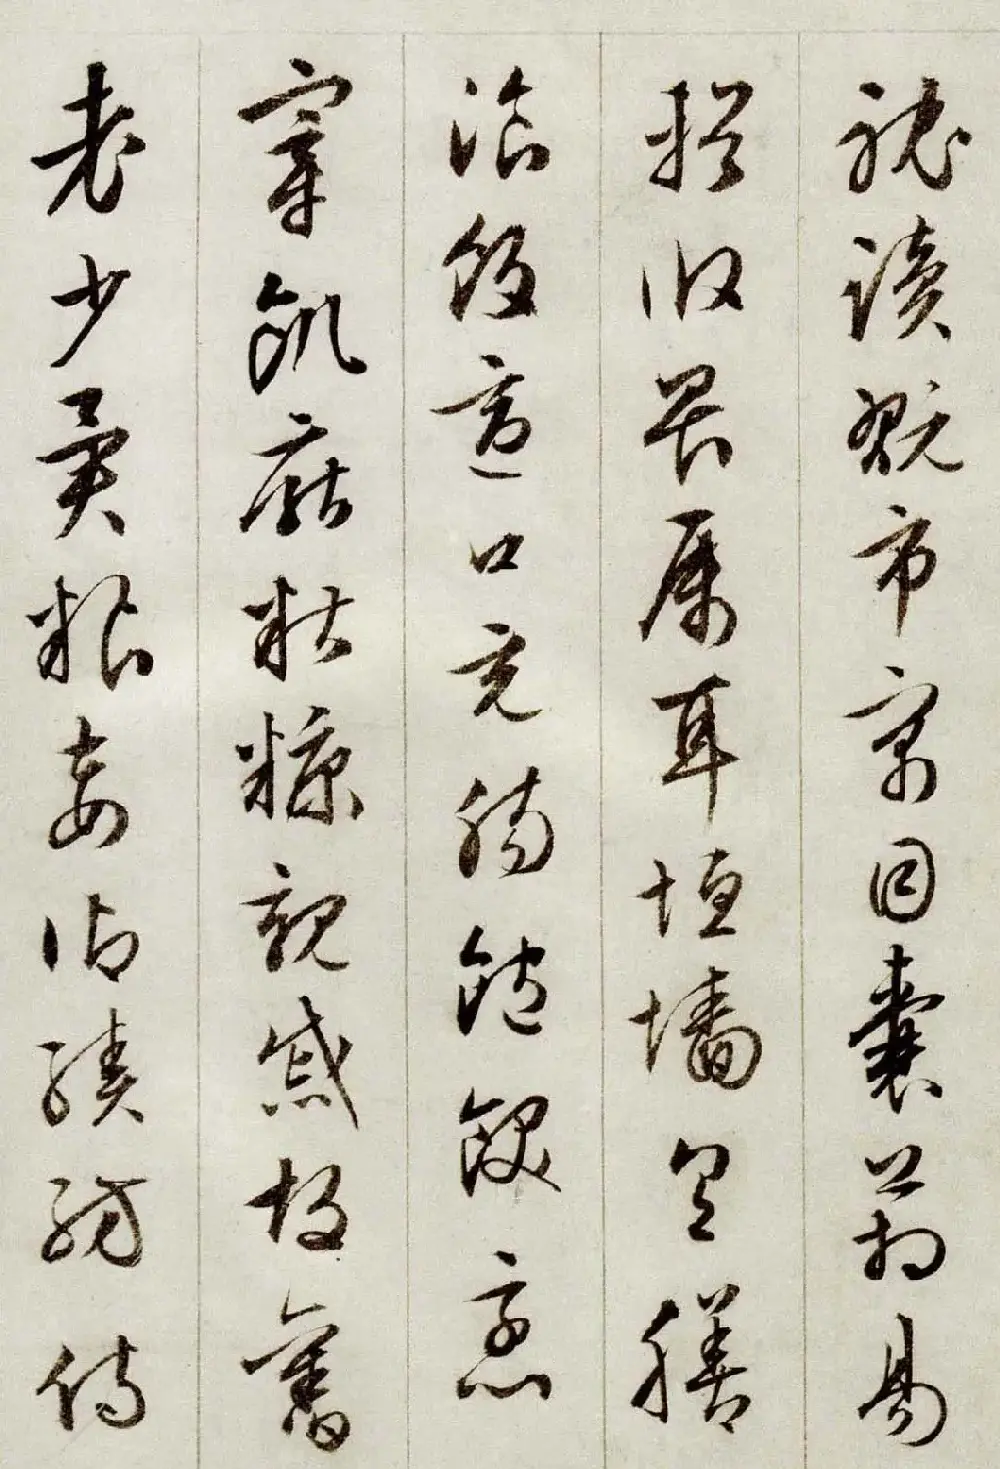 耽讀翫市寓目囊箱易
輶攸畏屬耳垣墻具膳
湌飯適口充腸飽飫烹
宰飢厭糟糠親戚故舊
老少異糧妾御績紡侍